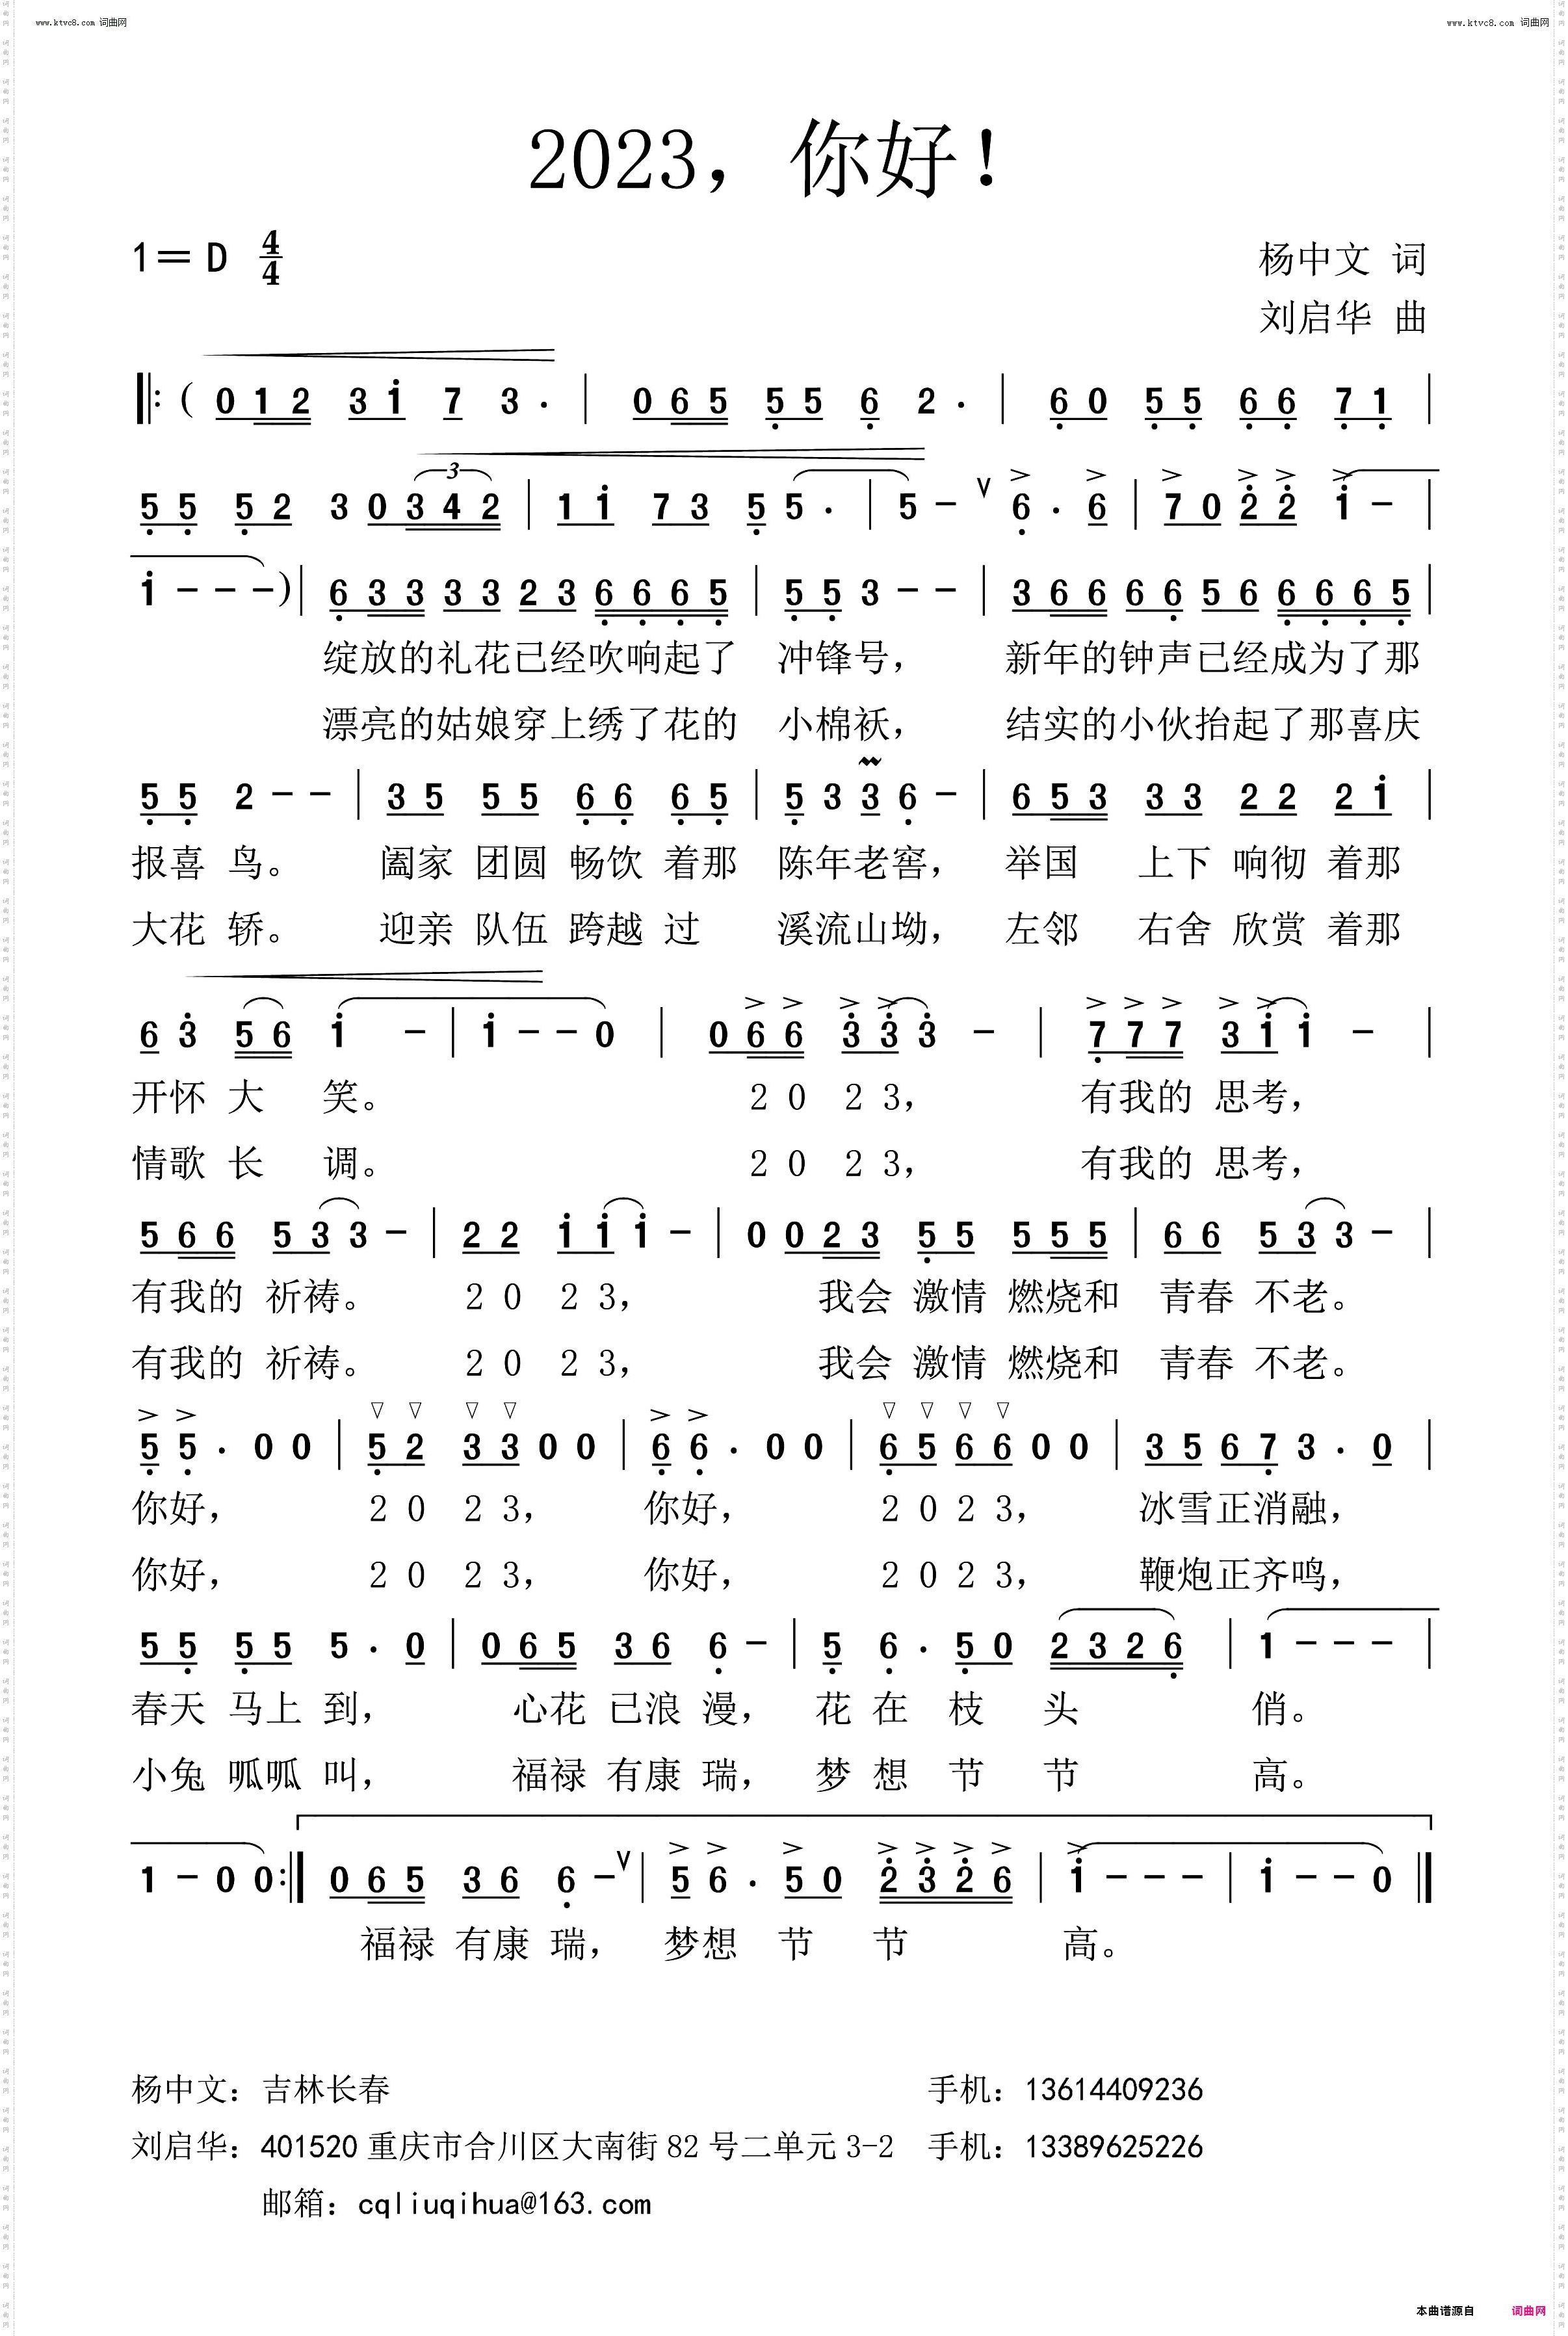 www.ktvc8.com 词曲网
www.ktvc8.com 词曲网
2023，你好！
1＝ D 4/4
杨中文 词
刘启华 曲
( 0 1 2 3 1 7 3 . | 0 6 5 5 5 6 2 . | 6 0 5 5 6 6 7 1 |
5 5 5 2 3 0 3 4 2 | 1 1 7 3 5 5 . | 5 - 6 . 6 | 7 0 2 2 1 - |
3
1 - - - ) | 6 3 3 3 3 2 3 6 6 6 5 | 5 5 3 - - | 3 6 6 6 6 5 6 6 6 6 5 |
绽放的礼花已经吹响起了 冲锋号， 新年的钟声已经成为了那
漂亮的姑娘穿上绣了花的 小棉袄， 结实的小伙抬起了那喜庆
5 5 2 - - | 3 5 5 5 6 6 6 5 | 5 3 3 6 - | 6 5 3 3 3 2 2 2 1 |
报喜 鸟。 阖家 团圆 畅饮 着那 陈年老窖， 举国 上下 响彻 着那
大花 轿。 迎亲 队伍 跨越 过 溪流山坳， 左邻 右舍 欣赏 着那
6 3 5 6 1 - | 1 - - 0 | 0 6 6 3 3 3 - | 7 7 7 3 1 1 - |
开怀 大 笑。 2 0 2 3， 有我的 思考，
情歌 长 调。 2 0 2 3， 有我的 思考，
5 6 6 5 3 3 - | 2 2 1 1 1 - | 0 0 2 3 5 5 5 5 5 | 6 6 5 3 3 - |
有我的 祈祷。 2 0 2 3， 我会 激情 燃烧和 青春 不老。
有我的 祈祷。 2 0 2 3， 我会 激情 燃烧和 青春 不老。
5 5 . 0 0 | 5 2 3 3 0 0 | 6 6 . 0 0 | 6 5 6 6 0 0 | 3 5 6 7 3 . 0 |
你好， 2 0 2 3， 你好， 2 0 2 3， 冰雪正消融，
你好， 2 0 2 3， 你好， 2 0 2 3， 鞭炮正齐鸣，
5 5 5 5 5 . 0 | 0 6 5 3 6 6 - | 5 6 . 5 0 2 3 2 6 | 1 - - - |
春天 马上 到， 心花 已浪 漫， 花 在 枝 头 俏。
小兔 呱呱 叫， 福禄 有康 瑞， 梦 想 节 节 高。
1 - 0 0 :| 0 6 5 3 6 6 - | 5 6 . 5 0 2 3 2 6 | 1 - - - | 1 - - 0 |
福禄 有康 瑞， 梦想 节 节 高。
杨中文：吉林长春 手机：13614409236
刘启华：401520 重庆市合川区大南街 82 号二单元 3-2 手机：13389625226
邮箱：cqliuqihua@163.com
本曲谱源自 词曲网